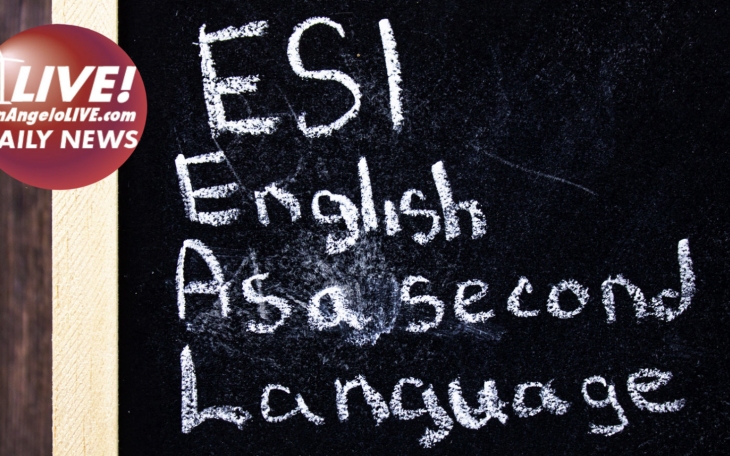 LIVE!
nAngeloLIVE.com
AILY NEWS
ESI
English
As a second
Language